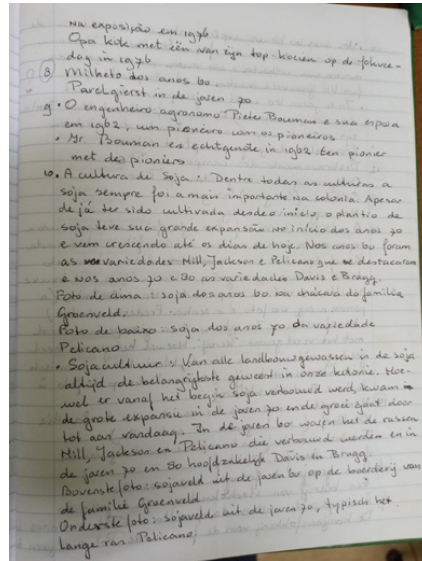 na exposição em 1976
Opa Kok met één van zijn top-koeien op de fokvee-
dag in 1976
8. Milheto dos anos 60
Parelgierst in de jaren 70
9. • O engenheiro agronomo Pieter Bouman e sua esposa
em 1962, um pioneiro com os pioneiros
• Ir. Bouman en echtgenote in 1962. Een pionier
met de pioniers
10. • A cultura de Soja: Dentre todas as culturas a
soja sempre foi a mais importante na colonia. Apesar
de já ter sido cultivada desde o início, o plantio de
soja teve sua grande expansão no início dos anos 70
e vem crescendo até os dias de hoje. Nos anos 60 foram
as variedades Hill, Jackson e Pelicano que se destacaram
e nos anos 70 e 80 as variedades Davis e Bragg.
Foto de cima: soja dos anos 60 na chácara da familia
Groenveld.
Foto de baixo: soja dos anos 70 da variedade
Pelicano
• Sojacultuur: Van alle landbouwgewassen is de soja
altijd de belangrijkste geweest in onze kolonie. Hoe-
wel er vanaf het begin soja verbouwd werd, kwam
de grote expansie in de jaren 70 en de groei gaat door
tot aan vandaag. In de jaren 60 waren het de rassen
Hill, Jackson en Pelicano die verbouwd werden en in
de jaren 70 en 80 hoofdzakelijk Davis en Bragg.
Bovenste foto: sojaveld uit de jaren 60 op de boerderij van
de familie Groenveld
Onderste foto: sojaveld uit de jaren 70, typisch het
lange ras Pelicano